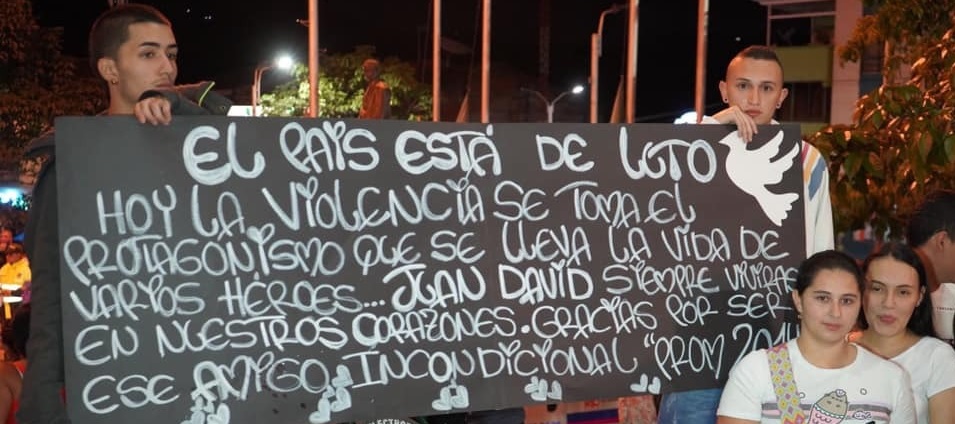 EL PAIS ESTÁ DE LUTO
HOY LA VIOLENCIA SE TOMA EL
PROTAGONISMO QUE SE LLEVA LA VIDA DE
VARIOS HÉROES... JUAN DAVID SIEMPRE VIVIRAS
EN NUESTROS CORAZONES. GRACIAS POR SER
ESE AMIGO INCONDICIONAL "PROM